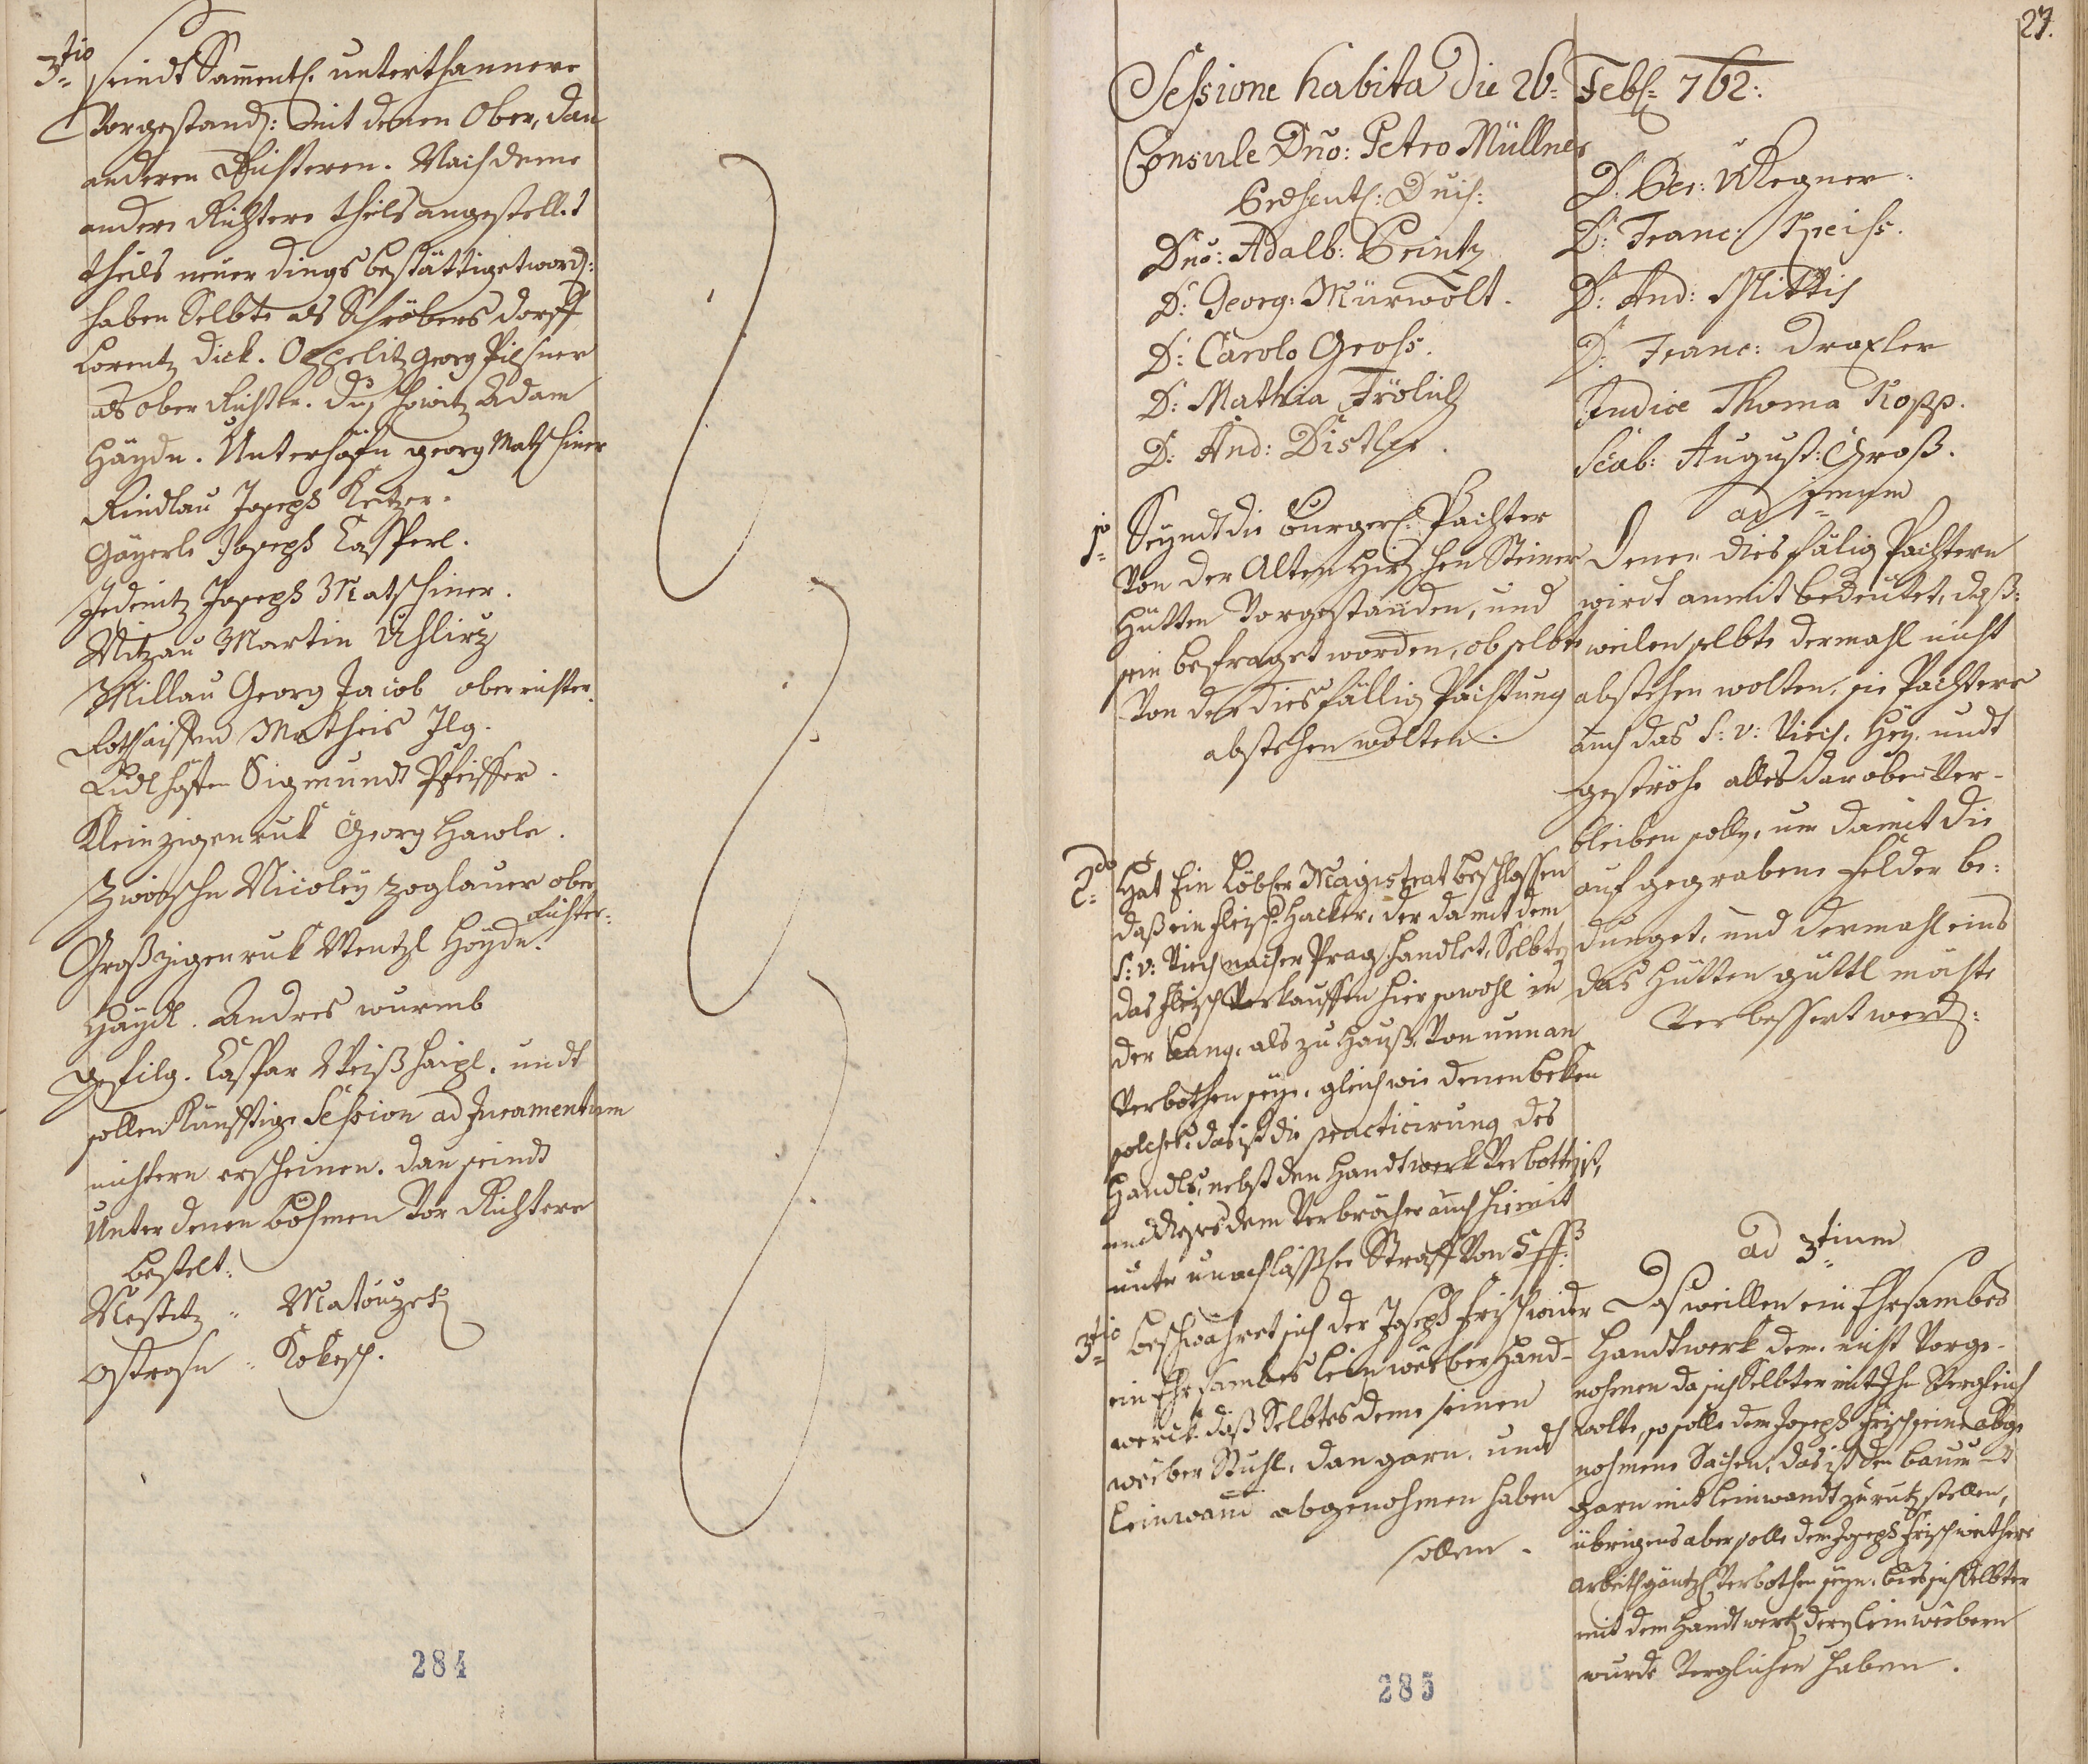 3tio seindt Samentl. unterthannere
Vorgestand: mit denen Ober, dan
anderen Richteren. Nachdeme
andere Richtere theils angestellt
theils neuer dings bestättiget word:
haben Selbte als Schröbersdorff
Lorentz Dick. Oppelitz Georg Pilsner
als ober Richter. Adam
Häyde. Unterhöfen georg Matschiner
Rindlau Joseph Ketzer.
Gäyerle Joseph Casperl.
Jedenitz Joseph Matschiner.
Mitzau Martin Uhlirz
Millau Georg Jacob oberrichter.
Rothsaissen Matheis Ilg.
Lidlhöfen Sigmundt Pfeiffer.
Kleinzigenruk Georg Hawle.
Zwoischn Nicoley Zoglauer ober
Richter:
Großzigenruk Wentzl Höyde.
Häydl. Andres wurmb
gesfilg. Caspar Weißhaipl. undt
sollen Künfftige Session ad Juramentum
nichtern erscheinen. dan seindt
Unter denen böhmen Vor Richtere
bestelt:
Nestitz " Matouzek
Ostrosn " Kokesch.
284
27.
Sessione habita die 26= Feb: 762:
Consule Dno: Petro Müllner
Prdsent: Duis:
Dno: Adalb: Printz
D: Georg: Mürwolt.
D: Carolo Gross.
D: Mathia Frölich
D: And: Distler.
D: Ger: Wegner.
D: Franc: Speiss.
D: And: Mittis
D: Franc: Draxler
Judice Thoma Kopp.
Scab: August: Groß.
1o Seyndt die burgerl: Pachter
Von der Alten Hirschen Steiner
Hütten Vorgestanden, und
sein befraget worden, ob selbte
Von der diesfällig Pachtung
abstehen wolten.
2do Hat Ein Löbl: Magistrat beschlossen
daß ein fleischhacker, der da mit dem
S: v: Viech nacher Prag handlet, Selbten
das fleisch Verkauffen hier sowohl in
der bang, als zu hauß, Von nun an
Verbothen seye, gleich wie denen beken
solches, das ist die practicirung des
Handls, nebst den Handtwerk Verbotten ist,
und dieses dem Verbröcher auch hiemit
unter unachlässlicher Straff Von 5 ff:
3tio beschwähret sich der Joseph frisch wider
ein Ehrsambes leinweeber Hand-
werck. daß Selbtes deme seinen
weeber Stuhl, dan garn, und
leinwand abgenohmen haben
sollen.
ad 1mum
Denen diesfälig Pachtern
wirdt anmit bedeutet, daß:
weilen selbte dermahl nicht
abstehen wolten, sie Pachtere
auch das S: v: Viech, Hey, undt
geströhe alles daroben Ver-
bleiben solle, um damit die
auf gegrabene felder be:
dunget, und dermahl eins
das Hütten güttl möchte
Verbessert werd:
ad 3tium
Das weillen ein Ehrsambes
Handtwerk dem nicht Vorge-
nohmen da sich Selbter mit Ihr Vergleich
wolte, so solle dem Joseph frisch seine abge
nohmene Sachen, das ist den baum
garn mit leinwandt zuruk stellen,
übrigens aber solle dem Joseph frisch weithere
arbeith gäntzl Verbothen seyn. bies sich Selbter
mit dem Handtwerk deren leinweebern
wurde Verglichen haben.
285